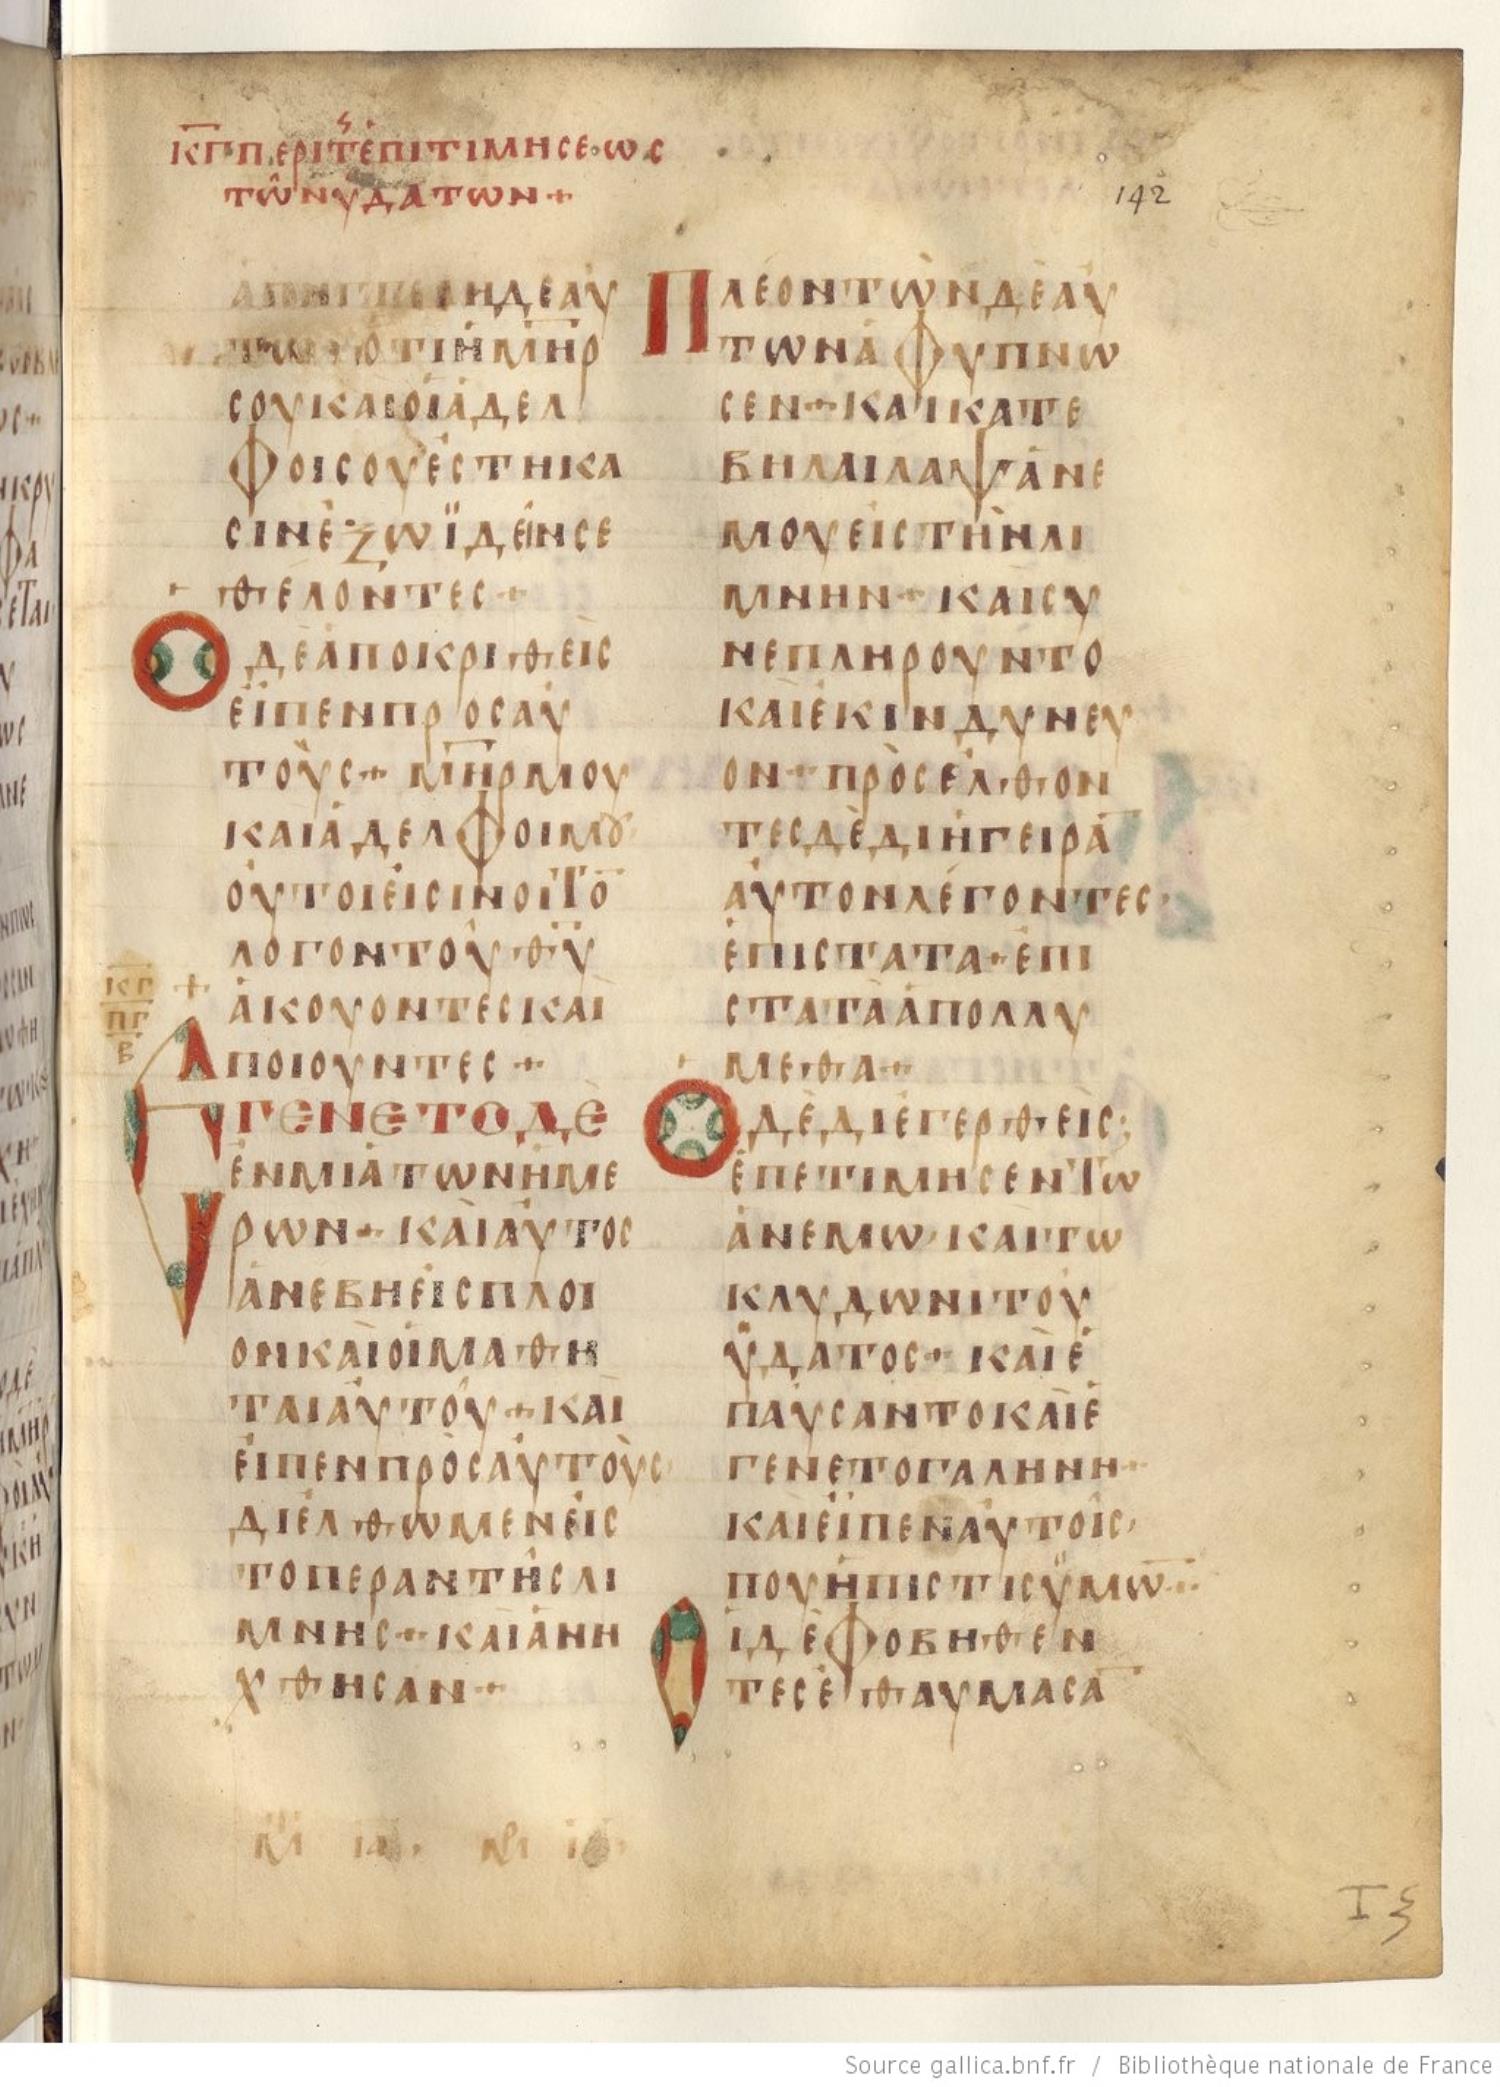 ΚΓ ΠΕΡΙ Τ ΕΠΙΤΙΜΗΣΕΩΣ
ΤΩΝ ΥΔΑΤΩΝ +
142
ΔΕΑΥ
ΟΤΙ Η ΜΗΡ
ΣΟΥ ΚΑΙ ΟΙ ΑΔΕΛ
ΦΟΙ ΣΟΥ ΕΣΤΗΚΑ
ΣΙΝ ΕΖΩ ΪΔΕΙΝ ΣΕ
ΘΕΛΟΝΤΕΣ +
Ο ΔΕ ΑΠΟΚΡΙΘΕΙΣ
ΕΙΠΕΝ ΠΡΟΣ ΑΥ
ΤΟΥΣ + ΜΗΡ ΜΟΥ
ΚΑΙ ΑΔΕΛΦΟΙ ΜȢ
ΟΥΤΟΙ ΕΙΣΙΝ ΟΙ ΤΟ
ΛΟΓΟΝ ΤΟΥ ΘΥ
ΑΚΟΥΟΝΤΕΣ ΚΑΙ
ΠΟΙΟΥΝΤΕΣ +
ΚΓ +
ΠΓ
Β
ΕΓΕΝΕΤΟ ΔΕ
ΕΝ ΜΙΑ ΤΩΝ ΗΜΕ
ΡΩΝ + ΚΑΙ ΑΥΤΟΣ
ΑΝΕΒΗ ΕΙΣ ΠΛΟΙ
ΟΝ ΚΑΙ ΟΙ ΜΑΘΗ
ΤΑΙ ΑΥΤΟΥ + ΚΑΙ
ΕΙΠΕΝ ΠΡΟΣ ΑΥΤΟΥΣ
ΔΙΕΛΘΩΜΕΝ ΕΙΣ
ΤΟ ΠΕΡΑΝ ΤΗΣ ΛΙ
ΜΝΗΣ + ΚΑΙ ΑΝΗ
ΧΘΗΣΑΝ +
ΠΛΕΟΝΤΩΝ ΔΕ ΑΥ
ΤΩΝ ΑΦΥΠΝΩ
ΣΕΝ + ΚΑΙ ΚΑΤΕ
ΒΗ ΛΑΙΛΑΨ ΑΝΕ
ΜΟΥ ΕΙΣ ΤΗΝ ΛΙ
ΜΝΗΝ + ΚΑΙ ΣΥ
ΝΕΠΛΗΡΟΥΝΤΟ
ΚΑΙ ΕΚΙΝΔΥΝΕΥ
ΟΝ + ΠΡΟΣΕΛΘΟΝ
ΤΕΣ ΔΕ ΔΙΗΓΕΙΡΑ
ΑΥΤΟΝ ΛΕΓΟΝΤΕΣ
ΕΠΙΣΤΑΤΑ + ΕΠΙ
ΣΤΑΤΑ ΑΠΟΛΛΥ
ΜΕΘΑ +
Ο ΔΕ ΔΙΕΓΕΡΘΕΙΣ
ΕΠΕΤΙΜΗΣΕΝ ΤΩ
ΑΝΕΜΩ ΚΑΙ ΤΩ
ΚΛΥΔΩΝΙ ΤΟΥ
ΥΔΑΤΟΣ + ΚΑΙ Ε
ΠΑΥΣΑΝΤΟ ΚΑΙ Ε
ΓΕΝΕΤΟ ΓΑΛΗΝΗ +
ΚΑΙ ΕΙΠΕΝ ΑΥΤΟΙΣ
ΠΟΥ Η ΠΙΣΤΙΣ ΥΜΩ
ΟΙ ΔΕ ΦΟΒΗΘΕΝ
ΤΕΣ ΕΘΑΥΜΑΣΑ
Source gallica.bnf.fr / Bibliothèque nationale de France